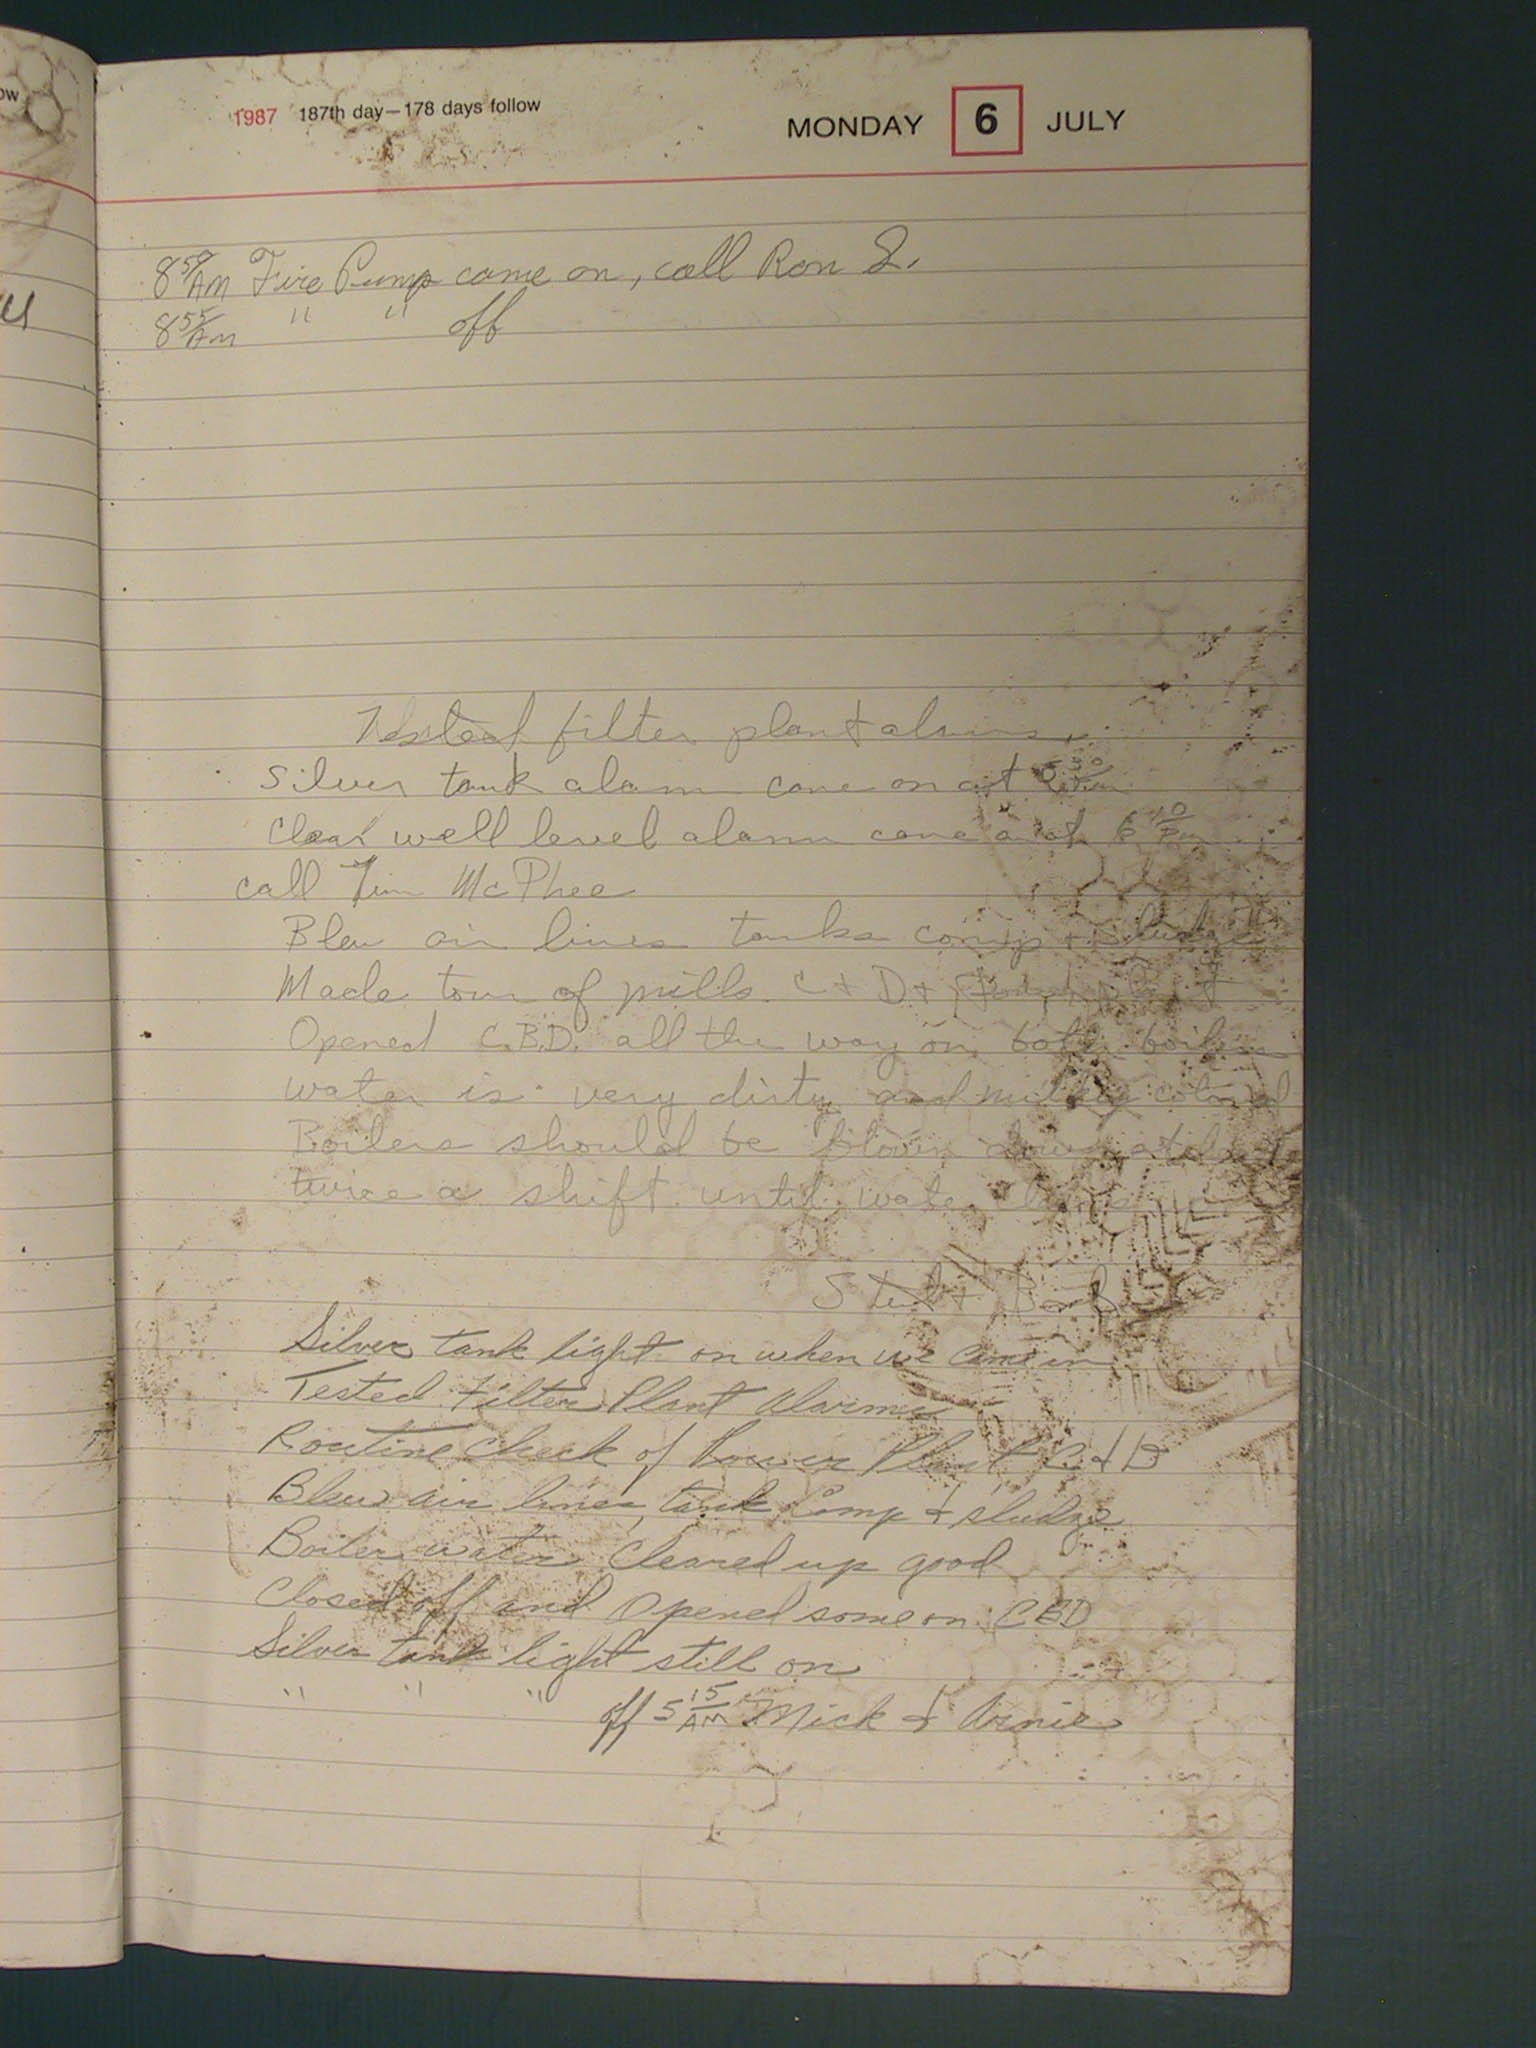 ow
1987 187th day—178 days follow
MONDAY 6 JULY
8 50 AM Fire Pump came on, call Ron L.
8 55 Am " " off
Tested filter plant alarms.
Silver tank alarm came on at
Clear well level alarm came at 6 10 Pm
call Tim McPhee
Blew air lines tanks comp + sludge
Made tour of mills C + D +
Opened C.B.D. all the way on both boilers
water is very dirty and milky colored
Boilers should be blown down at
twice a shift until water clears
Silver tank light on when we came in
Tested Filter Plant Alarms
Routine check of Power Plant C + B
Blew air lines, tank, Comp + sludge
Boiler water Cleared up good
Closed off and Opened some on CBD
Silver tank light still on
" " " off 5 15 AM Mick + Arnie